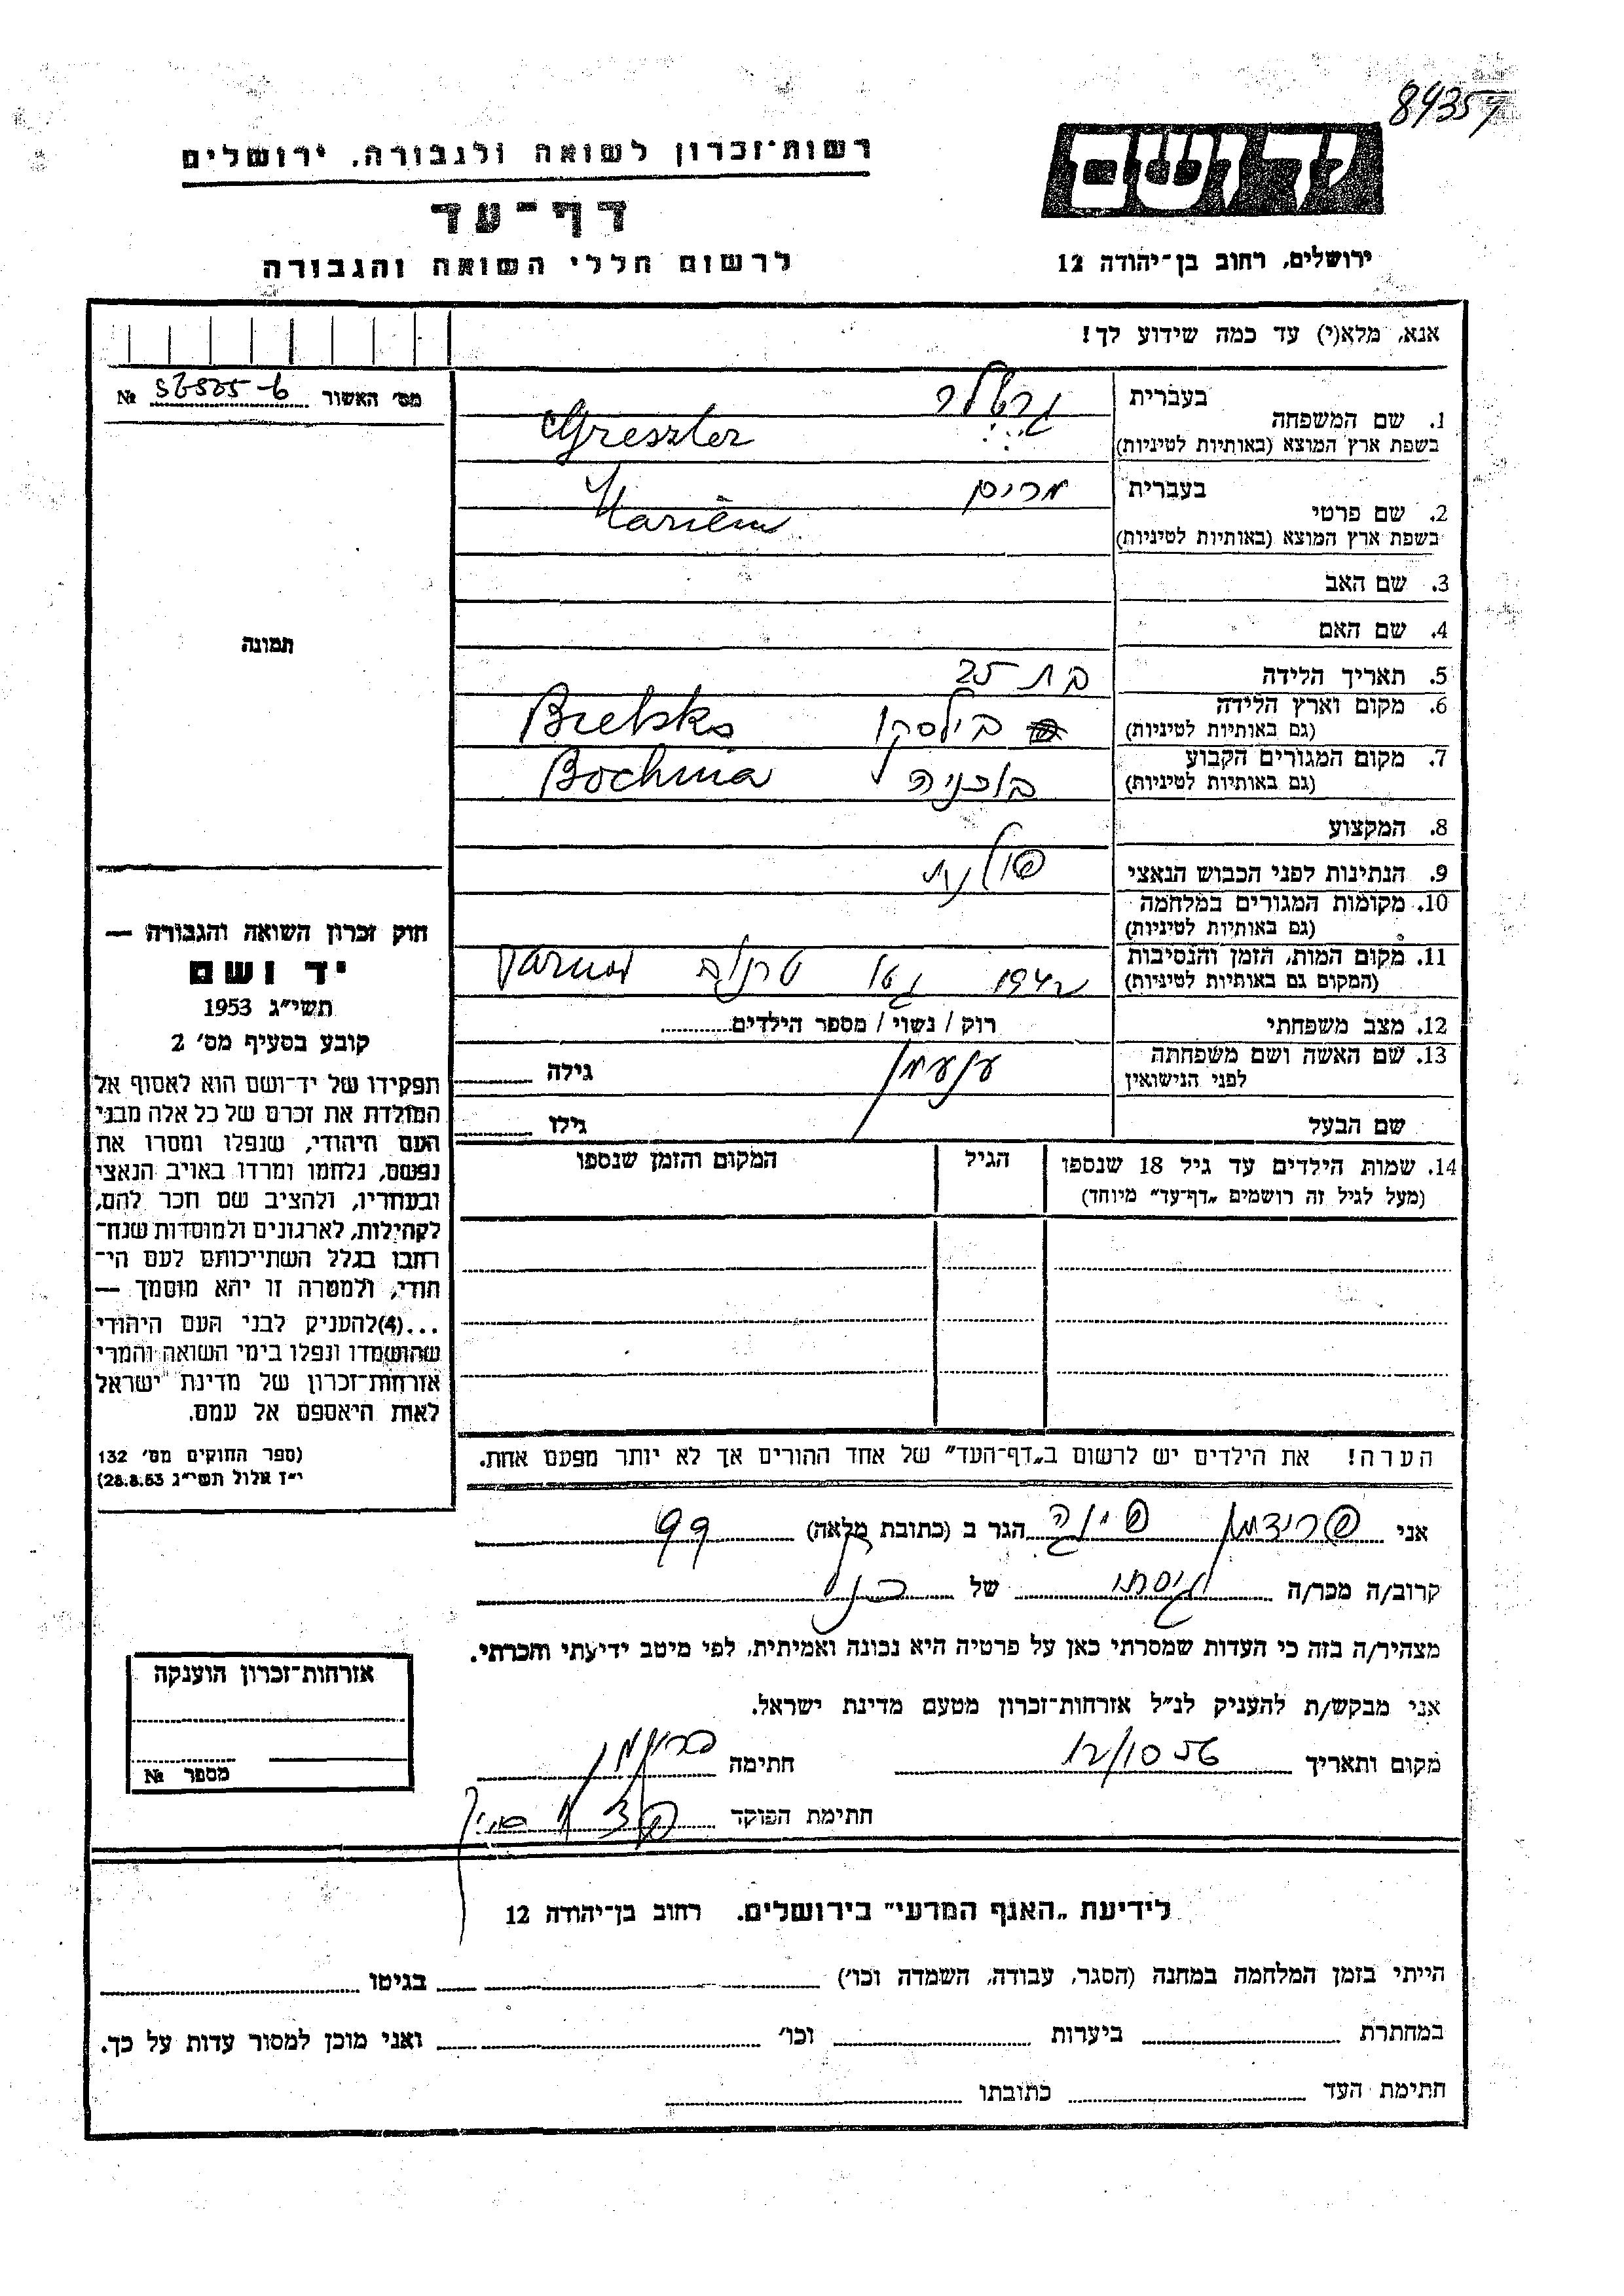 8435
רשות־זכרון לשואה ולגבורה, ירושלים
ידושם
דף־עד
לרשום חללי השואה והגבורה
ירושלים, רחוב בן־יהודה 12
אנא, מלא(י) עד כמה שידוע לך!
מס' האשור № 
1. שם המשפחה
בעברית
בשפת ארץ המוצא (באותיות לטיניות) Greszler
2. שם פרטי
בעברית מרים
בשפת ארץ המוצא (באותיות לטיניות) Mariem
3. שם האב
4. שם האם
5. תאריך הלידה בת 25
6. מקום וארץ הלידה בילסקו Bielsko
(גם באותיות לטיניות)
7. מקום המגורים הקבוע בוכניה Bochnia
(גם באותיות לטיניות)
8. המקצוע
9. הנתינות לפני הכבוש הנאצי פולנית
10. מקומות המגורים במלחמה
(גם באותיות לטיניות)
11. מקום המות, הזמן והנסיבות 1942 גטו
(המקום גם באותיות לטיניות)
12. מצב משפחתי רוק / נשוי / מספר הילדים
13. שם האשה ושם משפחתה גילה
לפני הנישואין
שם הבעל גילו
14. שמות הילדים עד גיל 18 שנספו הגיל המקום והזמן שנספו
(מעל לגיל זה רושמים „דף־עד" מיוחד)
הערה! את הילדים יש לרשום ב„דף־העד" של אחד ההורים אך לא יותר מפעם אחת.
תמונה
חוק זכרון השואה והגבורה —
יד ושם
תשי"ג 1953
קובע בסעיף מס' 2
תפקידו של יד־ושם הוא לאסוף אל
המולדת את זכרם של כל אלה מבני
העם היהודי, שנפלו ומסרו את
נפשם, נלחמו ומרדו באויב הנאצי
ובעוזריו, ולהציב שם וזכר להם,
לקהילות, לארגונים ולמוסדות שנח־
רבו בגלל השתייכותם לעם הי־
הודי, ולמטרה זו יהא מוסמך —
...(4)להעניק לבני העם היהודי
שהושמדו ונפלו בימי השואה והמרי
אזרחות־זכרון של מדינת ישראל
לאות היאספם אל עמם.
(ספר החוקים מס' 132
י"ז אלול תשי"ג 28.8.53)
אני פרידמן הגר ב (כתובת מלאה)
קרוב/ה מכר/ה של
מצהיר/ה בזה כי העדות שמסרתי כאן על פרטיה היא נכונה ואמיתית, לפי מיטב ידיעתי והכרתי.
אני מבקש/ת להעניק לנ"ל אזרחות־זכרון מטעם מדינת ישראל.
מקום ותאריך 12/10 56 חתימה
חתימת הפוקד
אזרחות־זכרון הוענקה
מספר №
לידיעת „האגף המדעי" בירושלים. רחוב בן־יהודה 12
הייתי בזמן המלחמה במחנה (הסגר, עבודה, השמדה וכו') בגיטו
במחתרת ביערות וכו' ואני מוכן למסור עדות על כך.
חתימת העד כתובתו